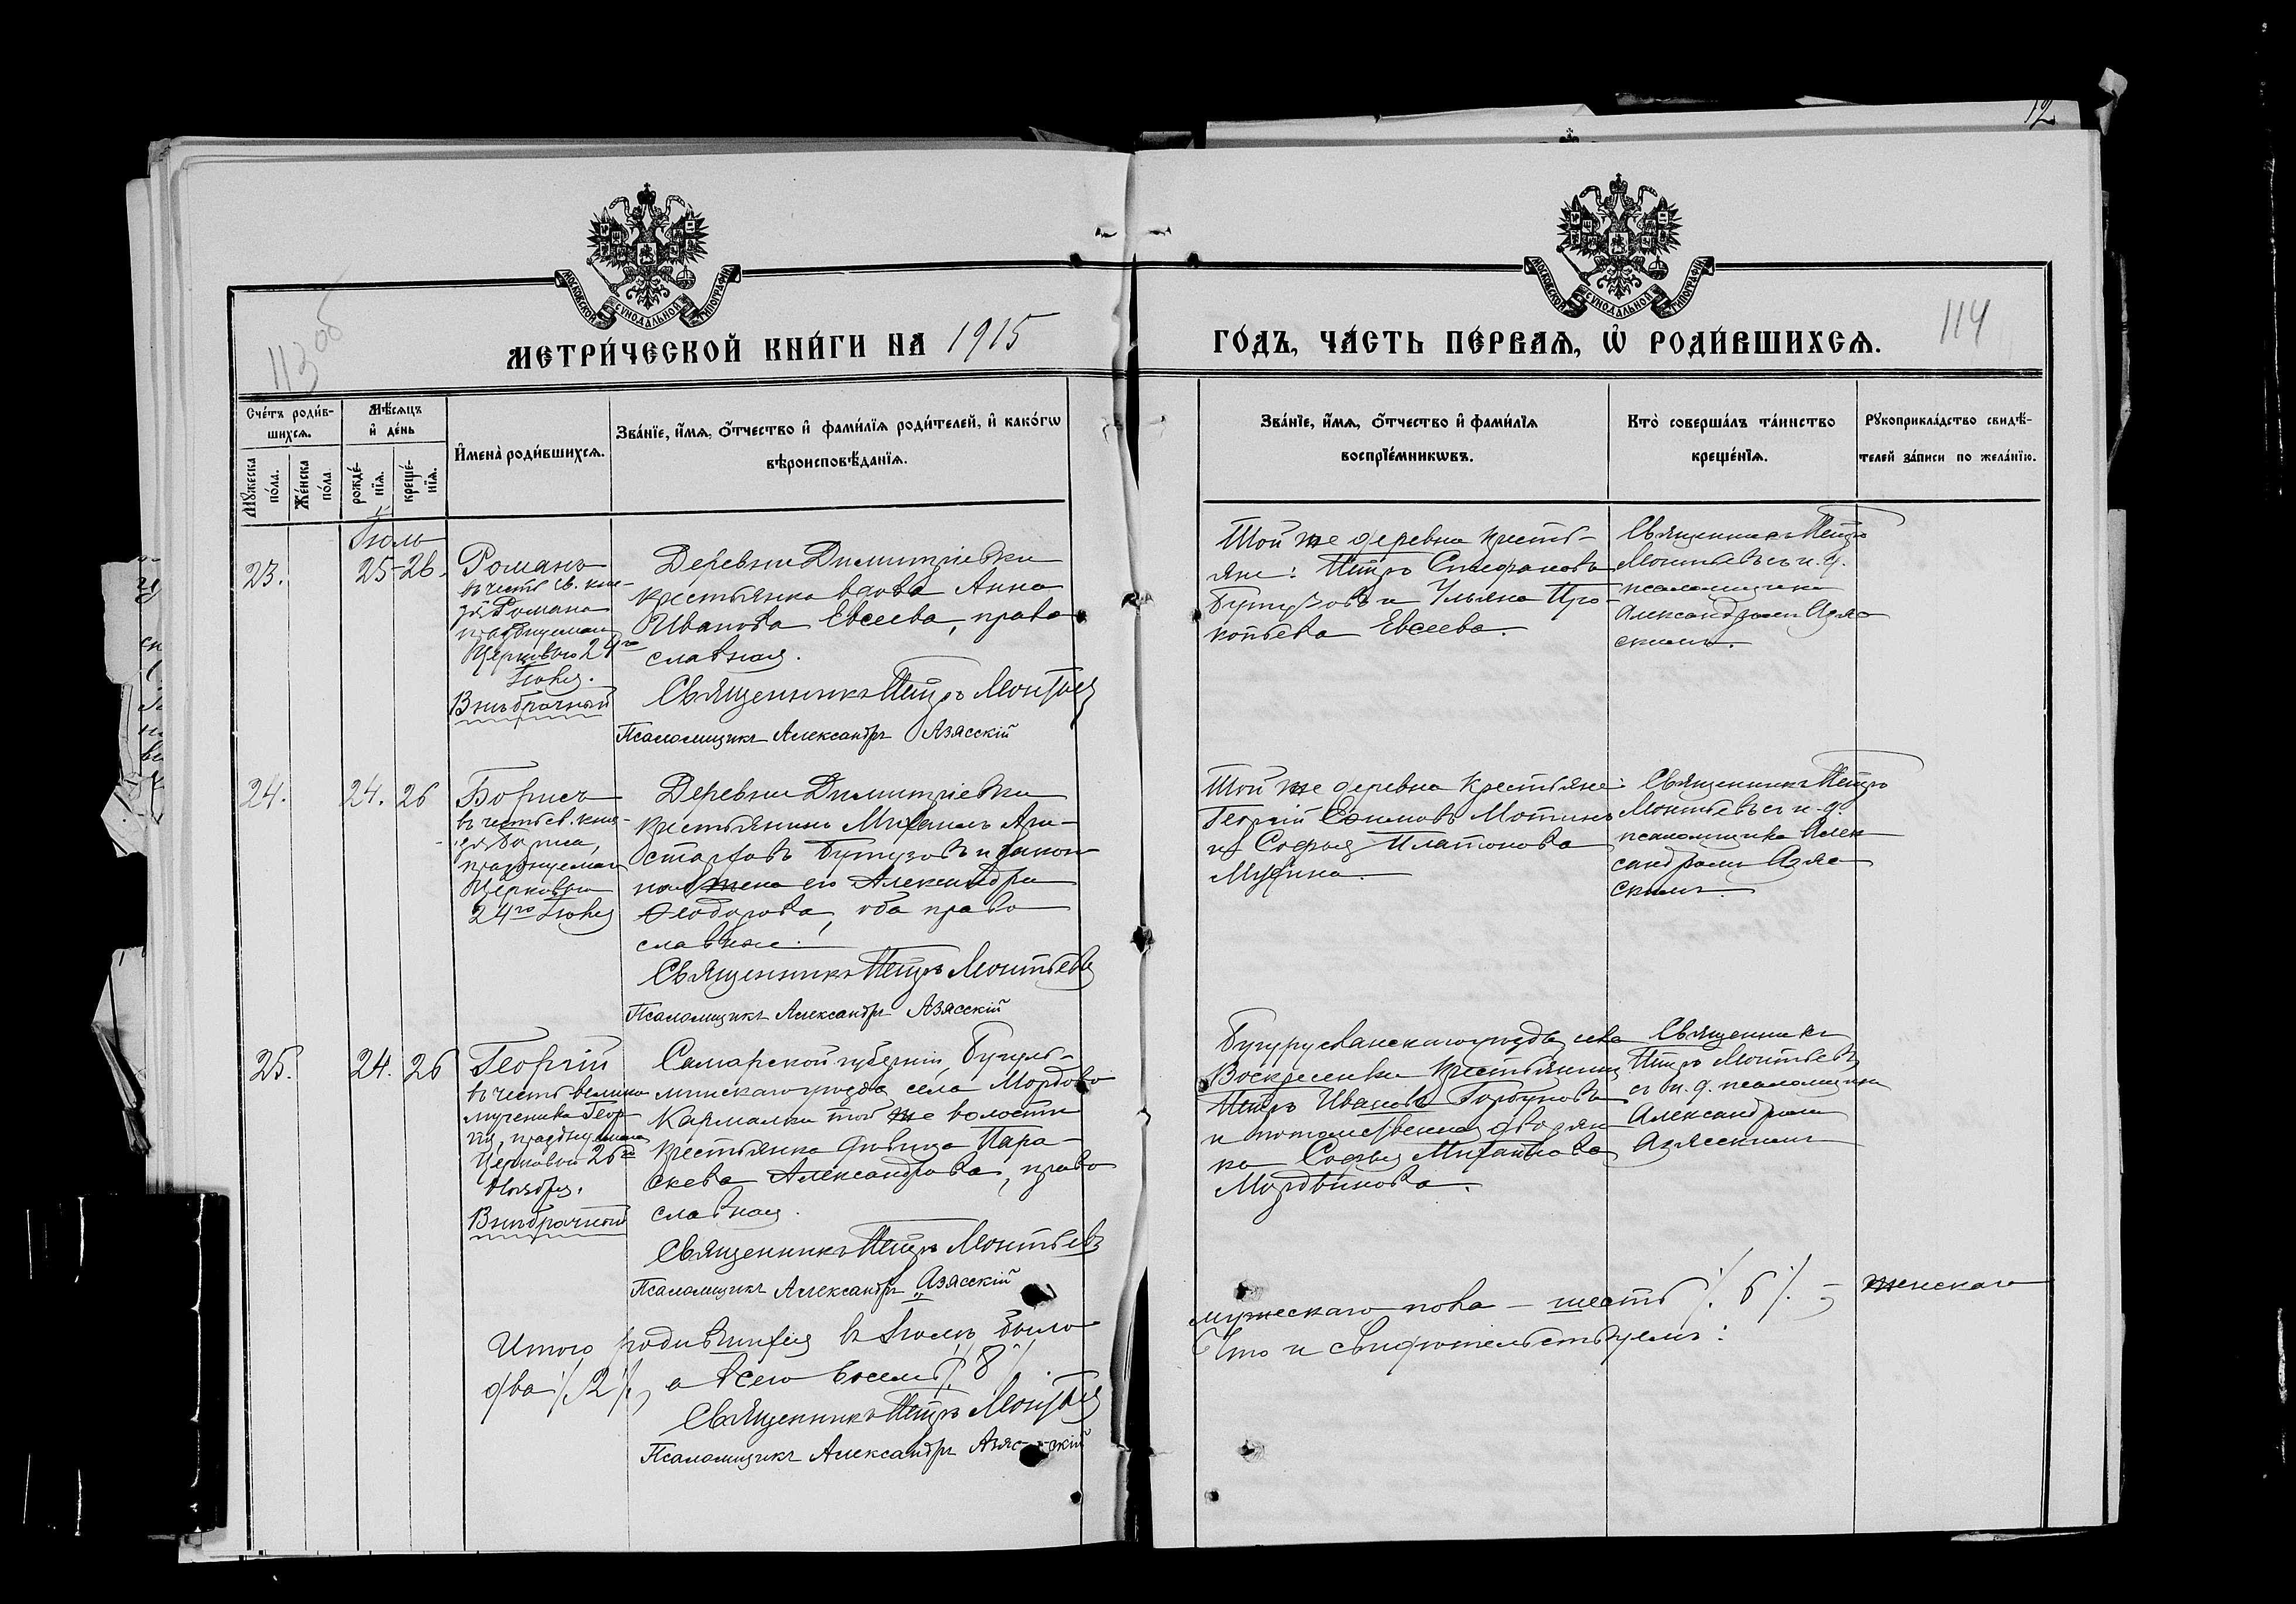 12
МОСКОВСКОЙ СѴНОДАЛЬНОЙ ТИПОГРАФІИ
МОСКОВСКОЙ СѴНОДАЛЬНОЙ ТИПОГРАФІИ
113 об
МЕТРИ́ЧЕСКОЙ КНИ́ГИ НА 1915
ГО́ДЪ, ЧА́СТЬ ПЕ́РВАЯ, Ѡ҆ РОДИ́ВШИХСѦ.
114
Сче́тъ роди́в-
шихсѧ.
Мꙋ́жеска по́ла.
Же́нска по́ла
Мѣ́сѧцъ
и҆ де́нь
рожде́-
нїѧ.
креще́-
нїѧ.
И҆мена̀ роди́вшихсѧ.
Зва́нїе, и҆́мѧ, ѻ҆́тчество и҆ фами́лїѧ роди́телей, и҆ како́гѡ
вѣроисповѣ́данїѧ.
Зва́нїе, и҆́мѧ, ѻ҆́тчество и҆ фами́лїѧ
воспрїе́мникѡвъ.
Кто̀ соверша́лъ та́инство
креще́нїѧ.
Рꙋкоприкла́дство свидѣ́-
телей за́писи по жела́нїю.
Іюль
23.
25-26.
Романъ
въ честь св. кня-
зя Романа
празднуемаго
Церковью 24го
Іюля.
Внѣбрачный
Деревни Димитріевки
крестьянка вдова Анна
Иванова Евсеева, право
славная.
Священникъ Петръ Леонтьев
Псаломщикъ Александръ Азясскій
Той же деревни кресть-
яне: Петръ Стефановъ
Бутузовъ и Ульяна Про-
копьева Евсеева.
Священникъ Петръ
Леонтьевъ съ и. д.
псаломщика
Александромъ Азяс
скимъ.
24.
24. 26
Борисъ
въ честь св. кня-
зя Бориса,
празднуемаго
Церковью
24го Іюля
Деревни Димитріевки
крестьянинъ Михаилъ Ари-
старховъ Бутузовъ и закон-
ная жена его Александра
Ѳеодорова, оба право
славные.
Священникъ Петръ Леонтьевъ
Псаломщикъ Александръ Азясскій
Той же деревни крестьяне:
Георгій Ефимовъ Мотинъ
и Софья Платонова
Священникъ Петръ
Леонтьевъ съ и. д.
псаломщика Алек-
сандромъ Азяс
скимъ.
25.
24. 26
Георгій
въ честь велико
мученика Геор-
гія, празднуемаго
Церковью 26го
Ноября.
Внѣбрачный
Самарской губерніи, Бугуль-
минскаго уѣзда села Мордово
Кармалки той же волости
крестьянка дѣвица Пара-
скева Александрова, право
славная.
Священникъ Петръ Леонтьевъ
Псаломщикъ Александръ Азясскій
Бугурусланскаго уѣзда села
Воскресенки крестьянинъ
Петръ Ивановъ Горбуновъ
и потомственная дворян
ка Софья Михайлова
Мордвинова.
Священникъ
Петръ Леонтьевъ
съ и. д. псаломщика
Александромъ
Азясскимъ
Итого родившихся въ Іюлѣ было
мужескаго пола – шесть /. 6 /. – женскаго
два /. 2 /., а всего восемь /. 8 /.
Что и свидѣтельствуемъ:
Священникъ Петръ Леонтьев
Псаломщикъ Александръ Азясскій